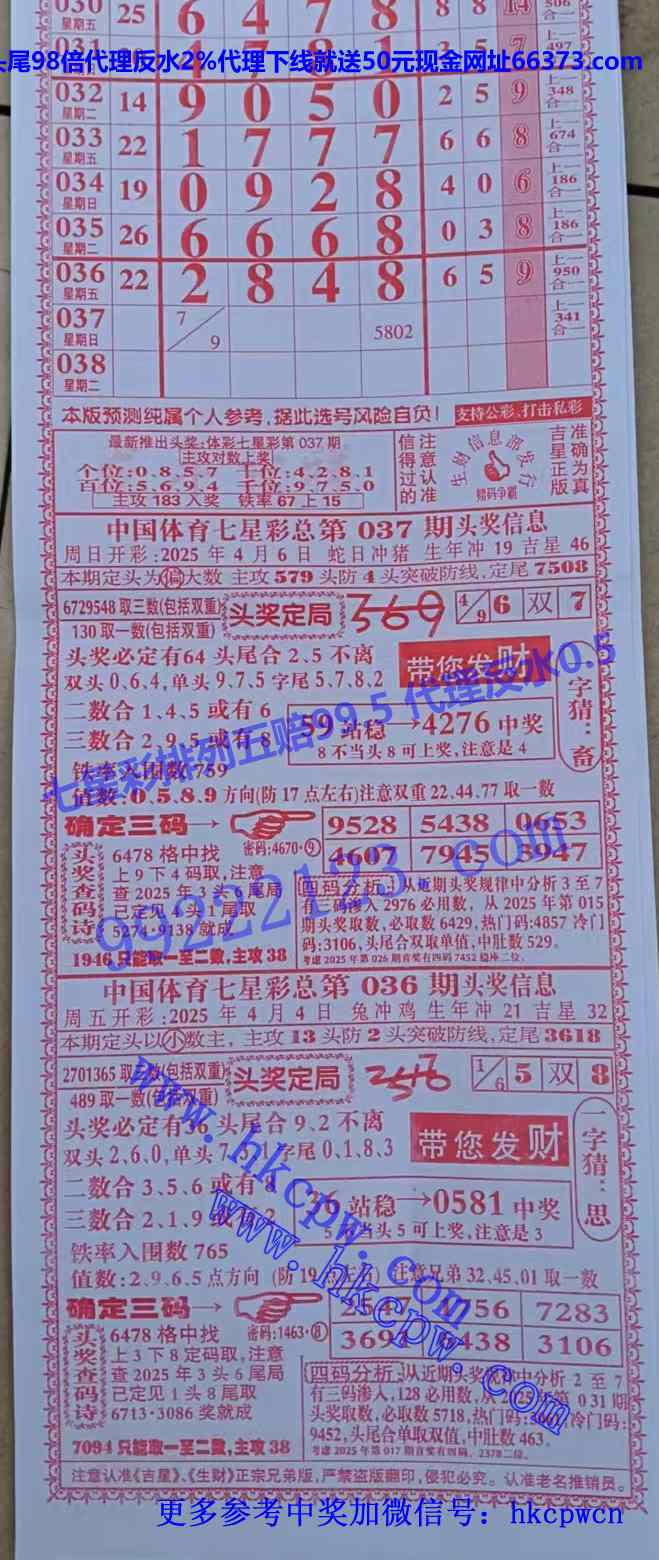 030 星期五 25 6 4 7 8 8 8 14 506 合一
头尾98倍代理反水2%代理下线就送50元现金网址66373.com
032 星期二 14 9 0 5 0 2 5 9 上一 348 合一
033 星期五 22 1 7 7 7 6 6 8 上一 674 合一
034 星期日 19 0 9 2 8 4 0 6 上一 186 合一
035 星期二 26 6 6 6 8 0 3 8 上一 186 合一
036 星期五 22 2 8 4 8 6 5 9 上一 950 合一
037 星期日 7/9 5802 上一 341 合一
038 星期二
本版预测纯属个人参考,据此选号风险自负!
支持公彩,打击私彩
最新推出头奖:体彩七星彩第 037 期
主攻对数上奖
个位:0.8.5.7 十位:4.2.8.1
百位:5.6.9.4 千位:9.7.5.0
主攻 183 入奖 铁率 67 上 15
信得过的
注意认准
生码信息部发行
赌码争霸
吉星正版
准确为真
中国体育七星彩总第 037 期头奖信息
周日开彩:2025 年 4 月 6 日 蛇日冲猪 生年冲 19 吉星 46
本期定头为偏大数 主攻 579 头防 4 头突破防线,定尾 7508
6729548 取三数(包括双重)
130 取一数(包括双重)
头奖定局
369
4/9 6 双 7
头奖必定有64 头尾合 2.5 不离
双头 0.6.4,单头 9.7.5 字尾 5.7.8.2
带您发财
一字猜:畜
二数合 1.4.5 或有 6
三数合 2.9.5 或有 8
59 站稳→4276 中奖
8 不当头 8 可上奖,注意是 4
七星彩排列五赔99.5 代理反水0.5
铁率入围数 759
值数:0.5.8.9 方向(防 17 点左右)注意双重 22.44.77 取一数
确定三码→
密码:4670·⑨
9528 5438 0653
4607 7945 3947
99222123.com
头奖查码诗
6478 格中找
上 9 下 4 码取,注意
查 2025 年 3 头 6 尾局
已定见 4 头 1 尾取
5274·9138 就成
1946 只能取一至二数,主攻 38
四码分析:从近期头奖规律中分析 3 至 7
有三码渗入 2976 必用数, 从 2025 年第 015
期头奖取数,必取数 6429,热门码:4857 冷门
码:3106,头尾合双取单值,中肚数 529。
考虑 2025 年第 026 期前奖有四码 7452 稳座二位。
中国体育七星彩总第 036 期头奖信息
周五开彩:2025 年 4 月 4 日 兔冲鸡 生年冲 21 吉星 32
本期定头以小数主, 主攻 13 头防 2 头突破防线,定尾 3618
2701365 取三数(包括双重)
489 取一数(包括双重)
头奖定局
1/6 5 双 8
头奖必定有36 头尾合 9.2 不离
双头 2.6.0,单头 7.5.1 字尾 0.1.8.3
带您发财
一字猜:思
二数合 3.5.6 或有 8
三数合 2.1.9 或有 2
36 站稳→0581 中奖
5 不当头 5 可上奖,注意是 3
www.hkcpw.com
www.hkcpw.com
铁率入围数 765
值数:2.9.6.5 点方向 (防 19 点左右) 注意兄弟 32.45.01 取一数
确定三码→
密码:1463·⑧
7283
6438 3106
头奖查码诗
6478 格中找
上 3 下 8 定码取,注意
查 2025 年 3 头 6 尾局
已定见 1 头 8 尾取
6713·3086 奖就成
7094 只能取一至二数,主攻 38
四码分析:从近期头奖规律中分析 2 至 7
有三码渗入,128 必用数,从 2025 年第 031 期
头奖取数,必取数 5718,热门码: 冷门码:
9452,头尾合单取双值,中肚数 463。
考虑 2025 年第 017 期首奖有四码、2378二位。
注意认准《吉星》、《生财》正宗兄弟版,严禁盗版翻印,侵犯必究。认准老名推销员。
更多参考中奖加微信号: hkcpwcn